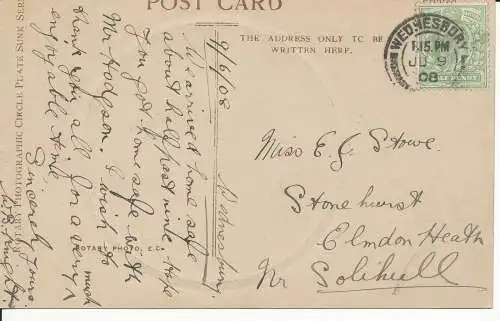 POST CARD
THE ADDRESS ONLY TO BE
WRITTEN HERE.
ROTARY PHOTOGRAPHIC CIRCLE PLATE SUNK SERI
ROTARY PHOTO, E.C.
WEDNESBURY
1.15 PM
JU 9
08
Wednesbury.
9/6/08
We arrived home safe
about half past nine hope
you got home safe with
Mr Hodgson. I wish to
thank you all for a very
much
enjoyable time
Sincerely Yours
Miss E. G. Stowe.
Stonehurst
Elmdon Heath
Nr Solihull